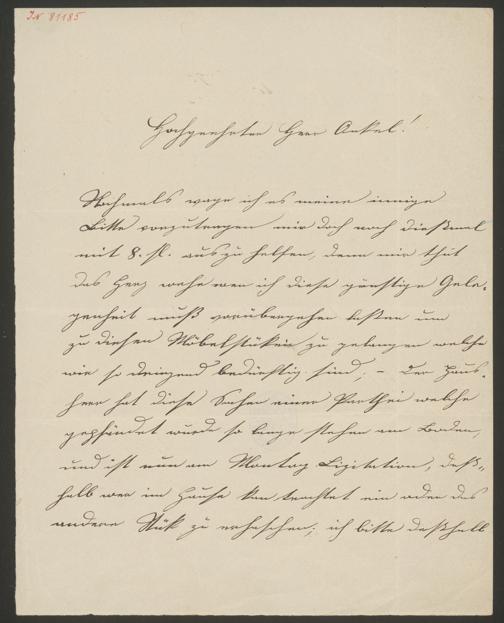 IN 81185
Hochgeehrter Herr Onkel!
Nochmals wage ich es meine innige
Bitte vorzutragen mir doch noch dießmal
mit 8. fl. auszuhelfen, denn mir thut
das Herz wehe wen ich diese günstige Gele-
genheit muß vorübergehen laßen um
zu diesen Möbelstüken zu gelangen welche
wir so dringend bedürftig sind; – Der Haus-
herr hat diese Sachen einer Parthei welche
gepfändet wurde so lange stehen am Boden,
und ist nun am Montag Lizitation, deß-
halb wer im Hause kan trachtet ein oder das
andere Stük zu erhaschen; ich bitte deßhalb